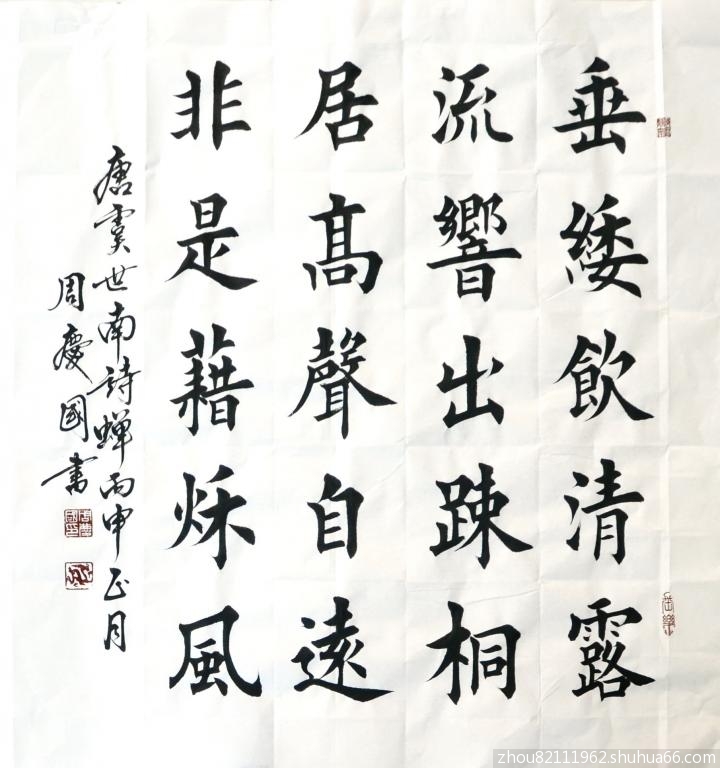 垂緌飲清露
流響出踈桐
居髙聲自遠
非是藉秌風
唐虞世南詩蝉丙申正月
周慶國書
zhou82111962.shuhua66.com